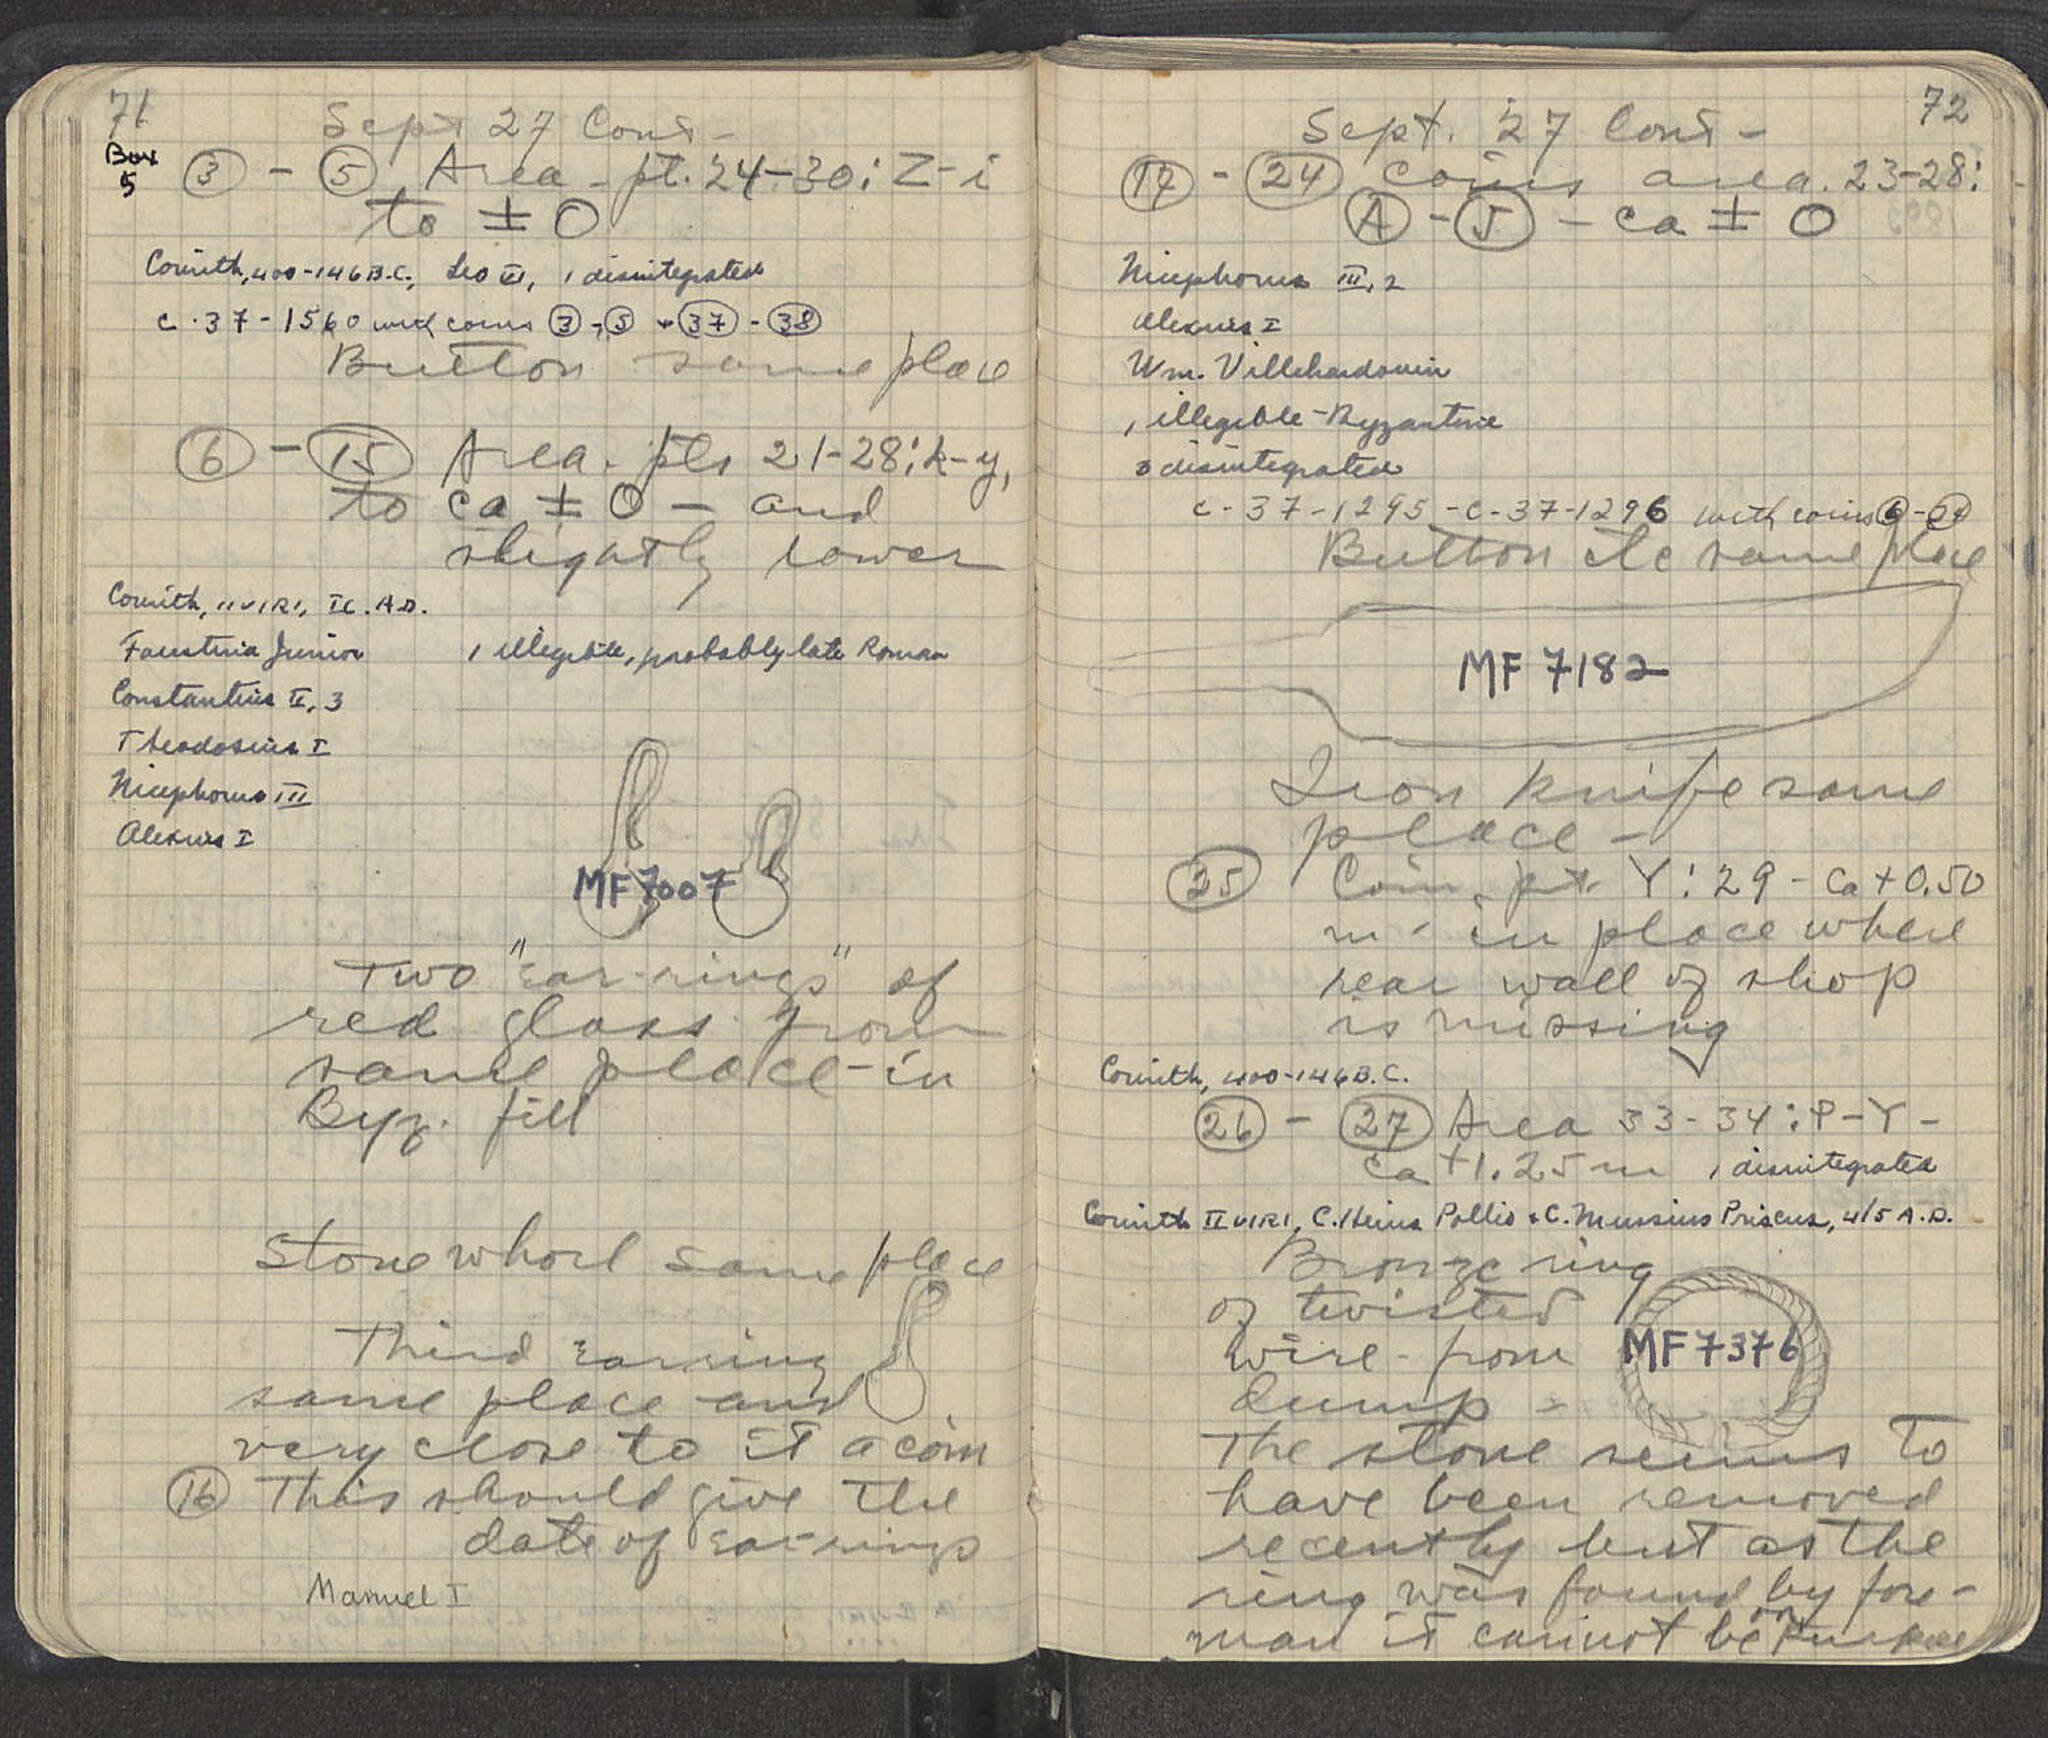 71
Sept 27 Cont-
Box
5
③ - ⑤ Area - pt. 24-30: Z-i
to ± 0
Corinth, 400-146 B.C., Leo VI, 1 disintegrated
C-37-1560 with coins ③-⑤ + ㊲-㊳
Button same place
⑥ - ⑮ Area - pts 21-28: k-y,
to ca ± 0 - and
slightly lower
Corinth, IIVIRI, IC. A.D.
Faustina Junior
1 illegible, probably late Roman
Constantius II, 3
Theodosius I
Nicephorus III
Alexius I
MF 7007
Two "ear-rings" of
red glass from
same place - in
Byz. fill
Stone whorl same place
Third earring
same place and
very close to it a coin
⑯ This should give the
date of ear-rings
Manuel I
72
Sept. 27 Cont-
⑰ - ㉔ coins area. 23-28:
Ⓐ - Ⓙ - ca ± 0
Nicephorus III, 2
Alexius I
Wm. Villehardouin
1 illegible - Byzantine
3 disintegrated
C-37-1295 - C-37-1296 with coins
Button etc same place
MF 7182
Iron knife same
place -
㉕ Coin, pt. Y: 29 - Ca + 0.50
m - in place where
rear wall of shop
is missing
Corinth, 400-146 B.C.
㉖ - ㉗ Area 33-34: P-Y-
ca +1.25 m 1 disintegrated
Corinth IIVIRI, C. Heius Pollio + C. Mussius Priscus, 4/5 A.D.
Bronze ring
of twisted
wire - from
dump -
MF 7376
The stone seems to
have been removed
recently but as the
ring was found by fore-
man it cannot be on purpose